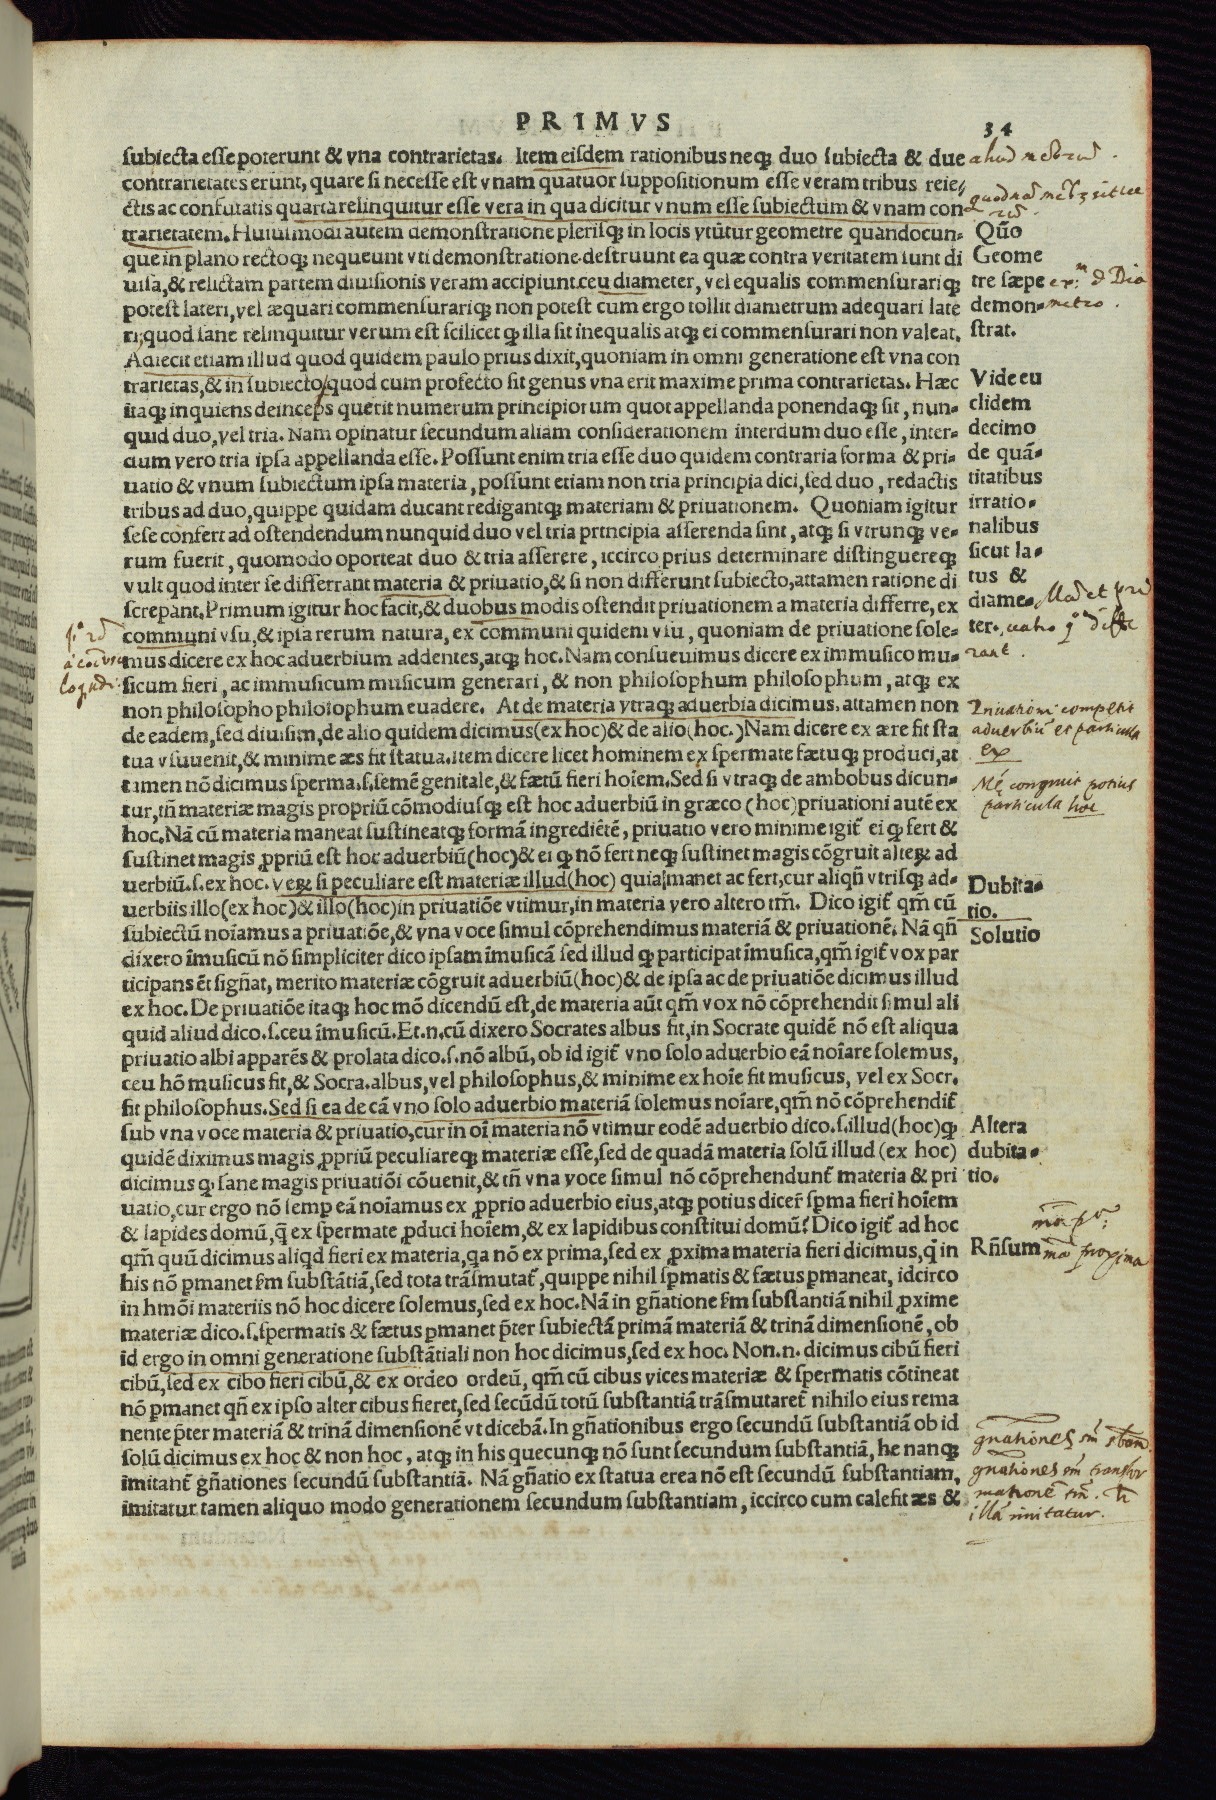 PRIMVS
34
subiecta esse poterunt & vna contrarietas. Item eisdem rationibus neqȝ duo subiecta & due
contrarietates erunt, quare si necesse est vnam quatuor suppositionum esse veram tribus reie/
ctis ac confutatis quarta relinquitur esse vera in qua dicitur vnum esse subiectum & vnam con
trarietatem. Huiusmodi autem demonstratione plerisqȝ in locis vtūtur geometre quandocun-
que in plano rectoqȝ nequeunt vti demonstratione. destruunt ea quæ contra veritatem sunt di
uisa, & relictam partem diuisionis veram accipiunt. ceu diameter, vel equalis commensurariqȝ
potest lateri, vel æquari commensurariqȝ non potest cum ergo tollit diametrum adequari late
ri; quod sane relinquitur verum est scilicet ꝙ illa sit inequalis atqȝ ei commensurari non valeat.
Adiecit etiam illud quod quidem paulo prius dixit, quoniam in omni generatione est vna con
trarietas, & in subiecto/quod cum profecto sit genus vna erit maxime prima contrarietas. Hæc
itaqȝ inquiens deinceps querit numerum principiorum quot appellanda ponendaqȝ sit, nun-
quid duo, vel tria. Nam opinatur secundum aliam considerationem interdum duo esse, inter-
dum vero tria ipsa appellanda esse. Possunt enim tria esse duo quidem contraria forma & pri-
uatio & vnum subiectum ipsa materia, possunt etiam non tria principia dici, sed duo, redactis
tribus ad duo, quippe quidam ducant redigantqȝ materiam & priuationem. Quoniam igitur
sese confert ad ostendendum nunquid duo vel tria principia asserenda sint, atqȝ si vtrunqȝ ve-
rum fuerit, quomodo oporteat duo & tria asserere, iccirco prius determinare distinguereqȝ
vult quod inter se differrant materia & priuatio, & si non differunt subiecto, attamen ratione di
screpant. Primum igitur hoc facit, & duobus modis ostendit priuationem a materia differre, ex
communi vsu, & ipsa rerum natura, ex communi quidem vsu, quoniam de priuatione sole-
mus dicere ex hoc aduerbium addentes, atqȝ hoc. Nam consueuimus dicere ex immusico mu-
sicum fieri, ac immusicum musicum generari, & non philosophum philosophum, atqȝ ex
non philosopho philosophum euadere. At de materia vtraqȝ aduerbia dicimus. attamen non
de eadem, sed diuisim, de alio quidem dicimus (ex hoc) & de alio (hoc.) Nam dicere ex ære fit sta
tua vsuuenit, & minime æs fit statua. item dicere licet hominem ex spermate fætuqȝ produci, at
tamen nō dicimus sperma. s. semē genitale, & fætū fieri hoīem. Sed si vtraqȝ de ambobus dicun-
tur, tñ materiæ magis propriū cōmodiusqȝ est hoc aduerbiū in græco (hoc) priuationi autē ex
hoc. Nā cū materia maneat sustineatqȝ formā ingrediētē, priuatio vero minime igit̃ ei ꝙ fert &
sustinet magis ꝓpriū est hoc aduerbiū (hoc) & ei ꝙ nō fert neqȝ sustinet magis cōgruit alteꝝ ad
uerbiū. s. ex hoc. veꝝ si peculiare est materiæ illud (hoc) quia manet ac fert, cur aliqñ vtrisqȝ ad-
uerbiis illo (ex hoc) & illo (hoc) in priuatiōe vtimur, in materia vero altero tm̃. Dico igit̃ qm̃ cū
subiectū noīamus a priuatiōe, & vna voce simul cōprehendimus materiā & priuationē. Nā qñ
dixero īmusicū nō simpliciter dico ipsam īmusicā sed illud ꝙ participat īmusica, qm̃ igit̃ vox par
ticipans ēt signat, merito materiæ cōgruit aduerbiū (hoc) & de ipsa ac de priuatiōe dicimus illud
ex hoc. De priuatiōe itaqȝ hoc mō dicendū est, de materia aūt qm̃ vox nō cōprehendit simul ali
quid aliud dico. s. ceu īmusicū. Et. n. cū dixero Socrates albus fit, in Socrate quidē nō est aliqua
priuatio albi apparēs & prolata dico. s. nō albū, ob id igit̃ vno solo aduerbio eā noīare solemus,
ceu hō musicus fit, & Socra. albus, vel philosophus, & minime ex hoīe fit musicus, vel ex Socr.
fit philosophus. Sed si ea de cā vno solo aduerbio materiā solemus noīare, qm̃ nō cōprehendit̃
sub vna voce materia & priuatio, cur in oī materia nō vtimur eodē aduerbio dico. s. illud (hoc) ꝙ
quidē diximus magis ꝓpriū peculiareqȝ materiæ esse, sed de quadā materia solū illud (ex hoc)
dicimus ꝙ sane magis priuatiōi cōuenit, & tñ vna voce simul nō cōprehendunt̃ materia & pri
uatio, cur ergo nō semꝑ eā noīamus ex ꝓprio aduerbio eius, atqȝ potius dicer̃ sꝑma fieri hoīem
& lapides domū, q̃ ex spermate ꝓduci hoīem, & ex lapidibus constitui domū? Dico igit̃ ad hoc
qm̃ quū dicimus aliqd fieri ex materia, qa nō ex prima, sed ex ꝓxima materia fieri dicimus, q̃ in
his nō ꝑmanet ẜm substātiā, sed tota trāsmutat̃, quippe nihil sꝑmatis & fætus ꝑmaneat, idcirco
in hmōi materiis nō hoc dicere solemus, sed ex hoc. Nā in gñatione ẜm substantiā nihil ꝓxime
materiæ dico. s. spermatis & fætus ꝑmanet p̃ter subiectā primā materiā & trinā dimensionē, ob
id ergo in omni generatione substātiali non hoc dicimus, sed ex hoc. Non. n. dicimus cibū fieri
cibū, sed ex cibo fieri cibū, & ex ordeo ordeū, qm̃ cū cibus vices materiæ & spermatis cōtineat
nō ꝑmanet qñ ex ipso alter cibus fieret, sed secūdū totū substantiā trāsmutaret̃ nihilo eius rema
nente p̃ter materiā & trinā dimensionē vt dicebā. In gñationibus ergo secundū substantiā ob id
solū dicimus ex hoc & non hoc, atqȝ in his quecunqȝ nō sunt secundum substantiā, he nanqȝ
imitant̃ gñationes secundū substantiā. Nā gñatio ex statua erea nō est secundū substantiam,
imitatur tamen aliquo modo generationem secundum substantiam, iccirco cum calefit æs &
Qūo
Geome
tre sæpe
demon-
strat.
Vide eu
clidem
decimo
de quā-
titatibus
irratio-
nalibus
sicut la-
tus &
diame-
ter.
Dubita-
tio.
Solutio
Altera
dubita-
tio.
Rñsum
metro.
rant.
Priuationi competit
aduerbiū et particula
ex
congruit potius
particula hoc
proxima
gnationes
gnationes
illā imitatur.